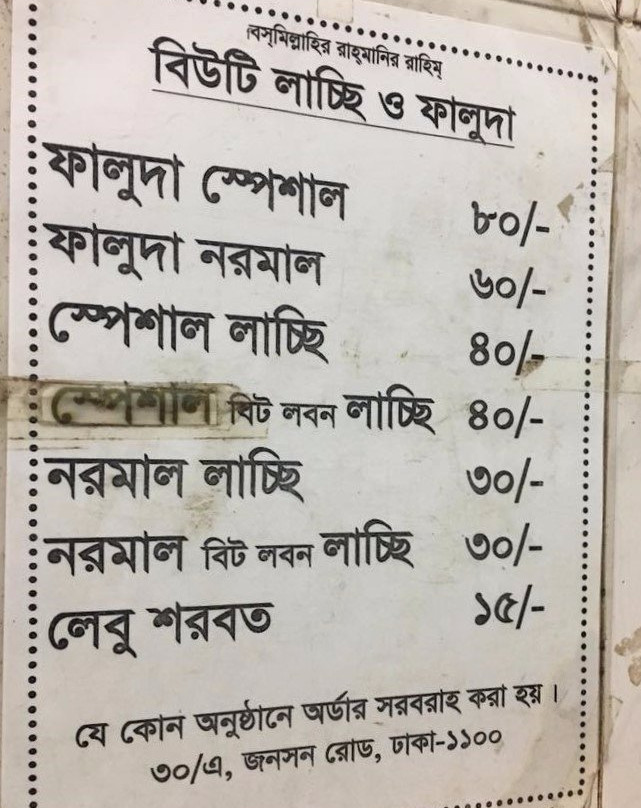 বিস্‌মিল্লাহির রাহ্‌মানির রাহিম্
বিউটি লাচ্ছি ও ফালুদা
ফালুদা স্পেশাল ৮০/-
ফালুদা নরমাল ৬০/-
স্পেশাল লাচ্ছি ৪০/-
স্পেশাল বিট লবন লাচ্ছি ৪০/-
নরমাল লাচ্ছি ৩০/-
নরমাল বিট লবন লাচ্ছি ৩০/-
লেবু শরবত ১৫/-
যে কোন অনুষ্ঠানে অর্ডার সরবরাহ করা হয় ।
৩০/এ, জনসন রোড, ঢাকা-১১০০